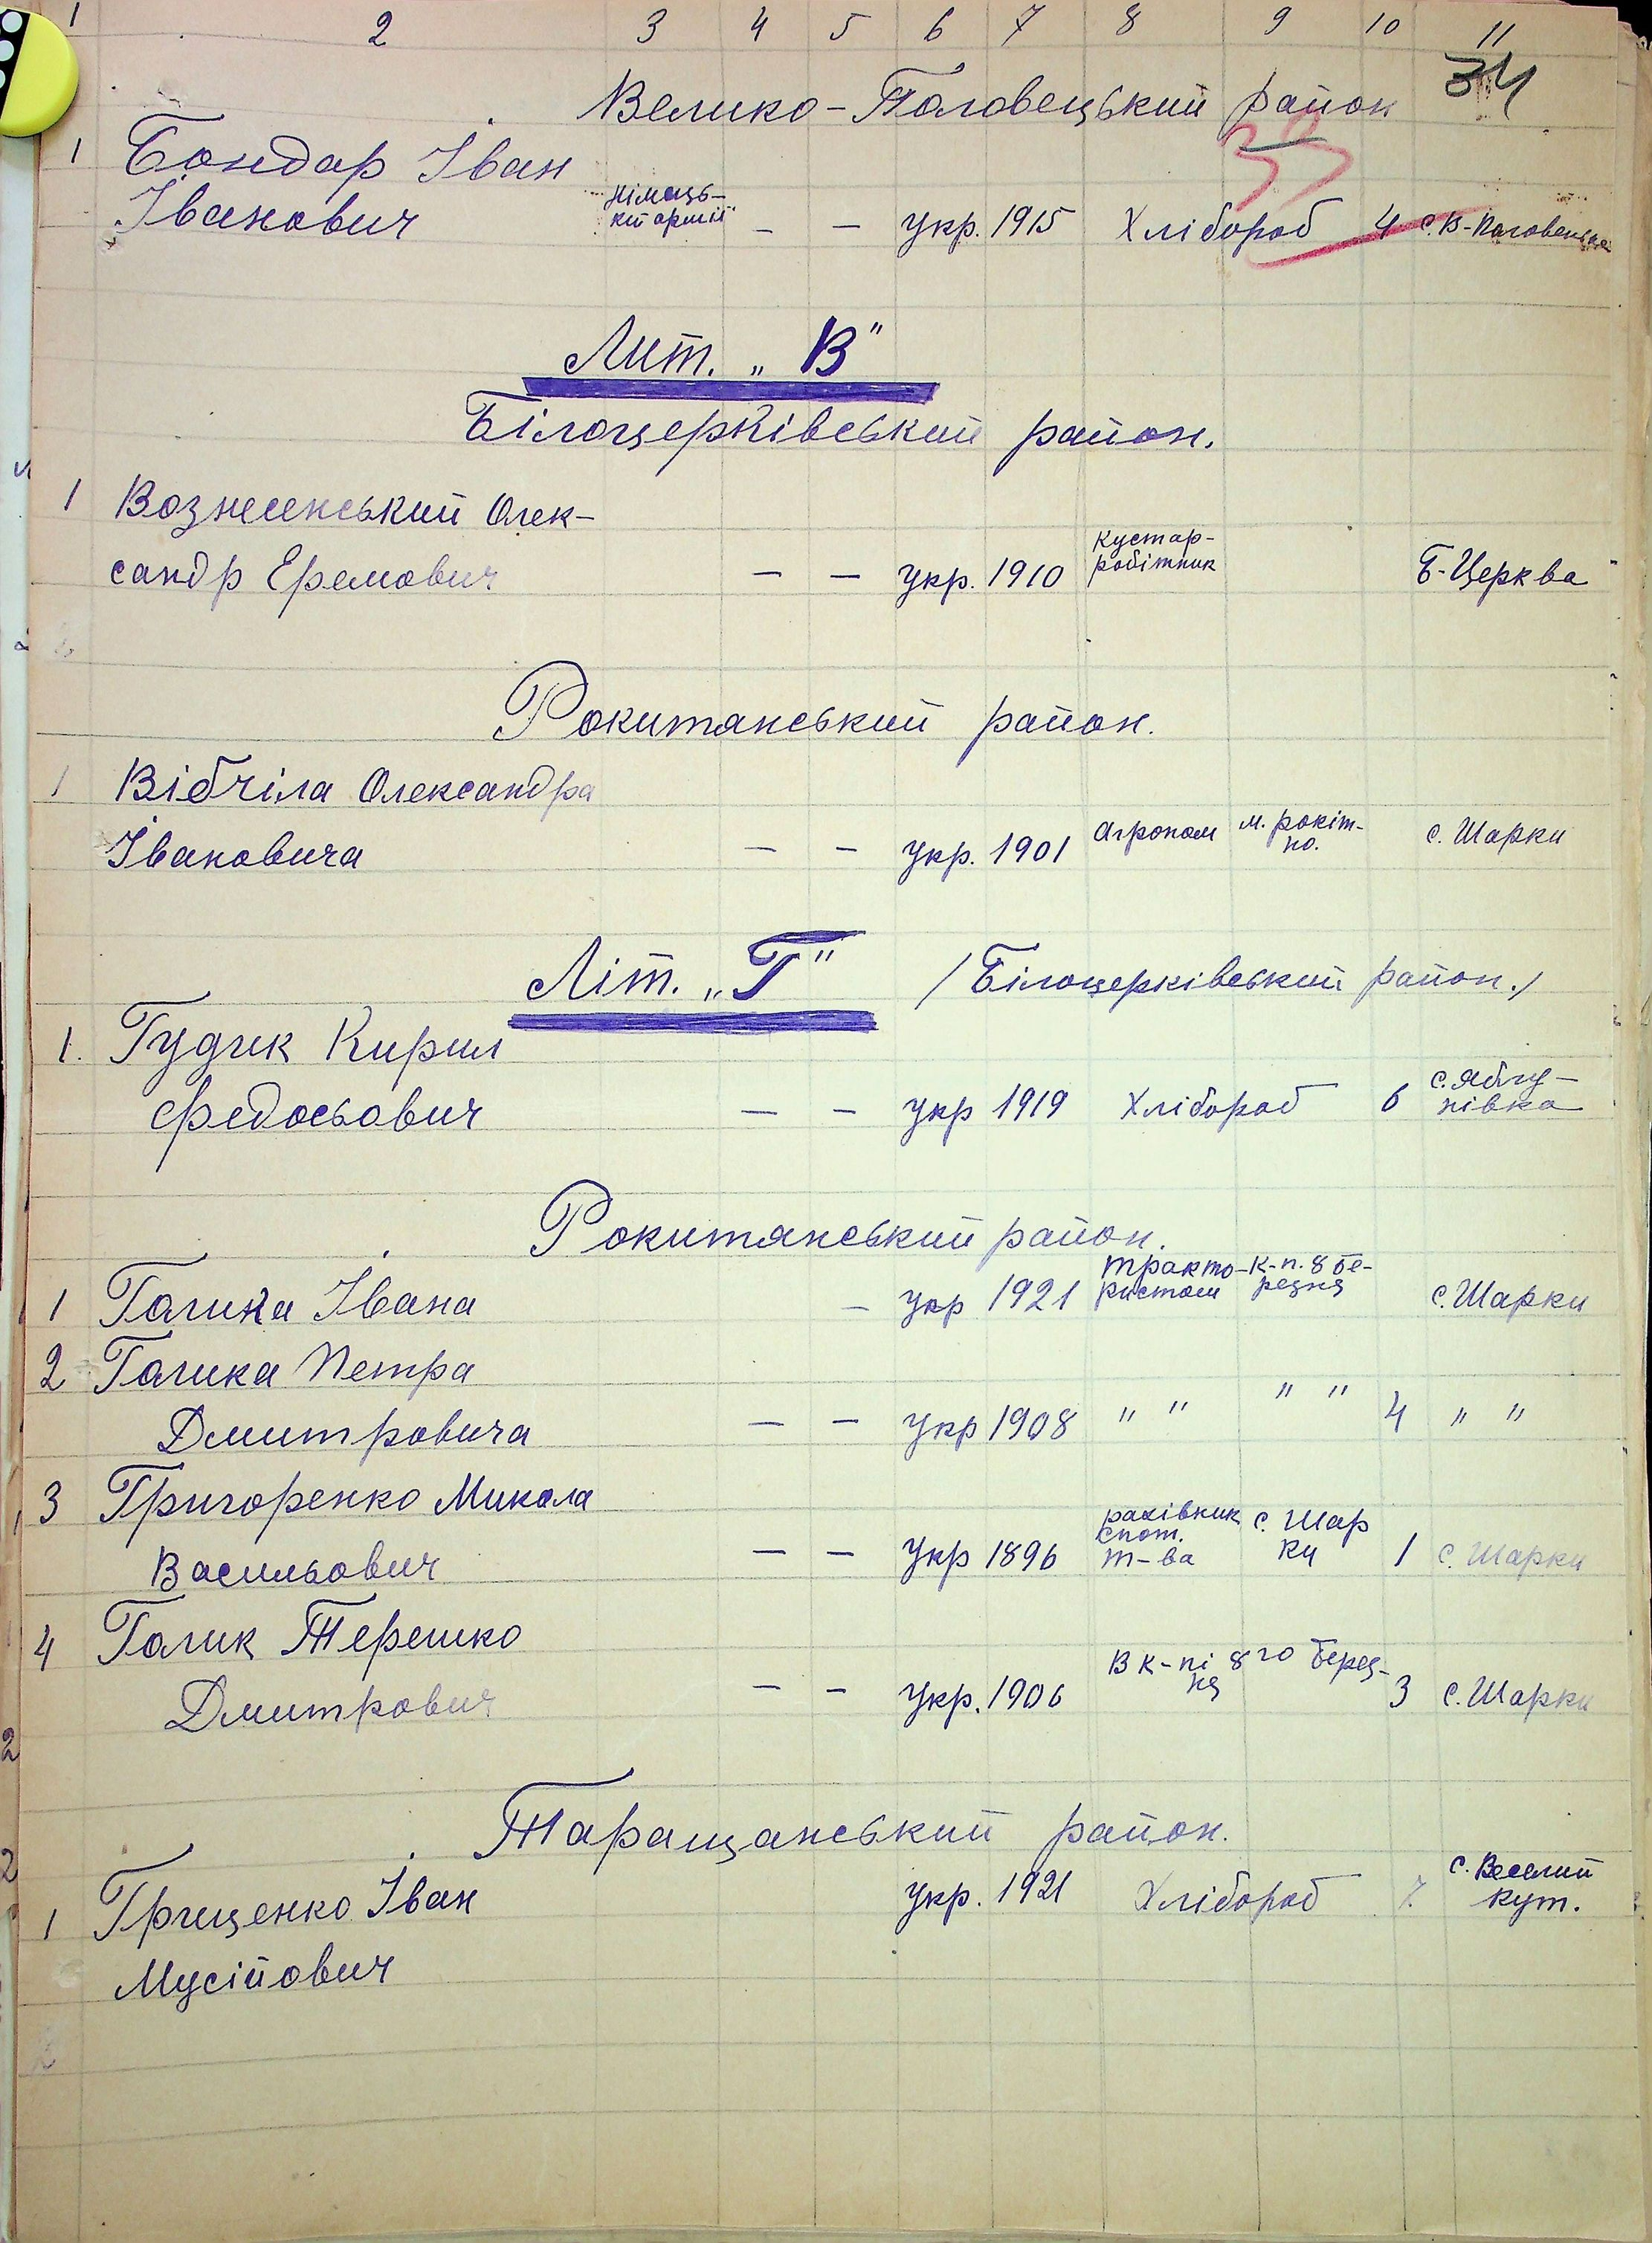 1 2 3 4 5 6 7 8 9 10 11
34
Велико-Половецький район
39
1 Бондар Іван
Іванович німець-кій армії – – укр. 1915 Хлібороб 4 с. В-Половецьке
Лит. „В"
Білоцерківський район.
1 Вознесенський Олек-
сандр Еремович – – укр. 1910 кустар-робітник Б-Церква
Рокитянський район.
1 Вібчіла Олександра
Івановича – – укр. 1901 Агроном м. рокіт-но. с. Шарки
Літ. „Г" /Білоцерківський район./
1. Гудик Кирил
Федосьович – – укр 1919 Хлібороб 6 с. Яблу-нівка
Рокитянський район.
1 Голика Івана – укр 1921 тракто-ристом к-п. 8 бе-резня с. Шарки
2 Голика Петра
Дмитровича – – укр 1908 " " " " 4 " "
3 Григоренко Микола
Васильович – – укр 1896 рахівник спот. т-ва с. Шар ки 1 с. Шарки
4 Голик Терешко
Дмитрович – – укр. 1906 В к-пі 8го берез-ня 3 с. Шарки
Таращанський район.
1 Грищенко Іван укр. 1921 Хлібороб 7 с. Веселий кут.
Мусійович